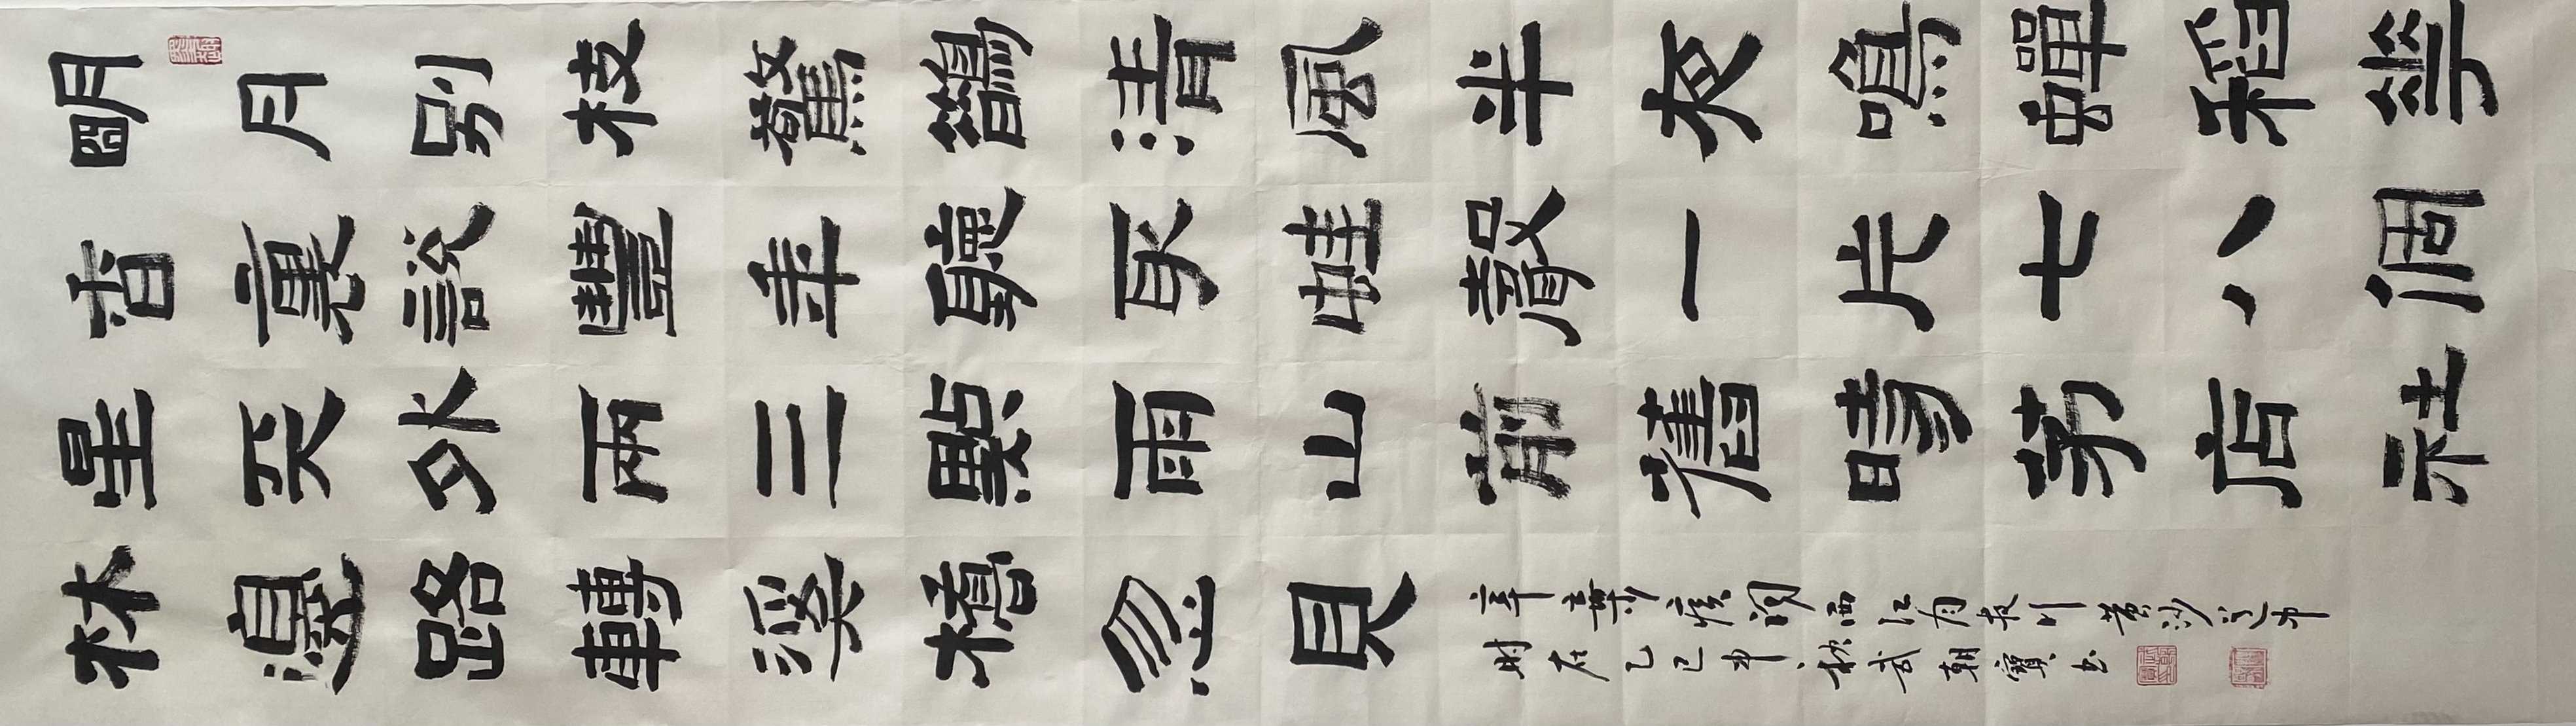 明月别枝驚鵲清風半夜鳴蟬稻華
香裏說豐年聽取蛙聲一片七八個
星天外兩三點雨山前舊時茅店社
林邊路轉溪橋忽見
辛棄疾詞西江月夜行黃沙道中
時在乙巳中秋武朝寶書